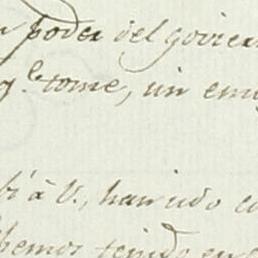 poder del govier
q.e tome, un em
bi á V., han ido co
hemos tenido en